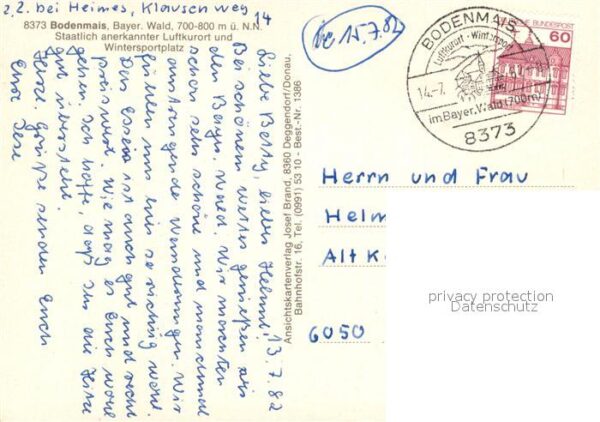 z.Z. bei Heimes, Klausenweg 14
8373 Bodenmais, Bayer. Wald, 700-800 m ü. N.N.
Staatlich anerkannter Luftkurort und
Wintersportplatz
13.7.82
Liebe Betty, lieber Helmut!
Bei schönem Wetter genießen wir
den Bayr. Wald. Wir machten
schon sehr schöne und manchmal
anstrengende Wanderungen. Wir
fühlen uns hier so richtig wohl.
Das Essen ist auch gut und recht
preiswert. Wie mag es Euch wohl
gehen. Ich hoffe, daß Ihr die Hitze
gut übersteht.
Herzl. Grüße senden Euch
Eure
Ansichtskartenverlag Josef Brand, 8360 Deggendorf/Donau,
Bahnhofstr. 16, Tel. (0991) 53 10 - Best.-Nr. 1386
15.7.82
BODENMAIS
Luftkurort - Wintersport
14.-7.
im Bayer. Wald (700m)
8373
DEUTSCHE BUNDESPOST
60
Herrn und Frau
Helm
Alt K
6050
privacy protection
Datenschutz